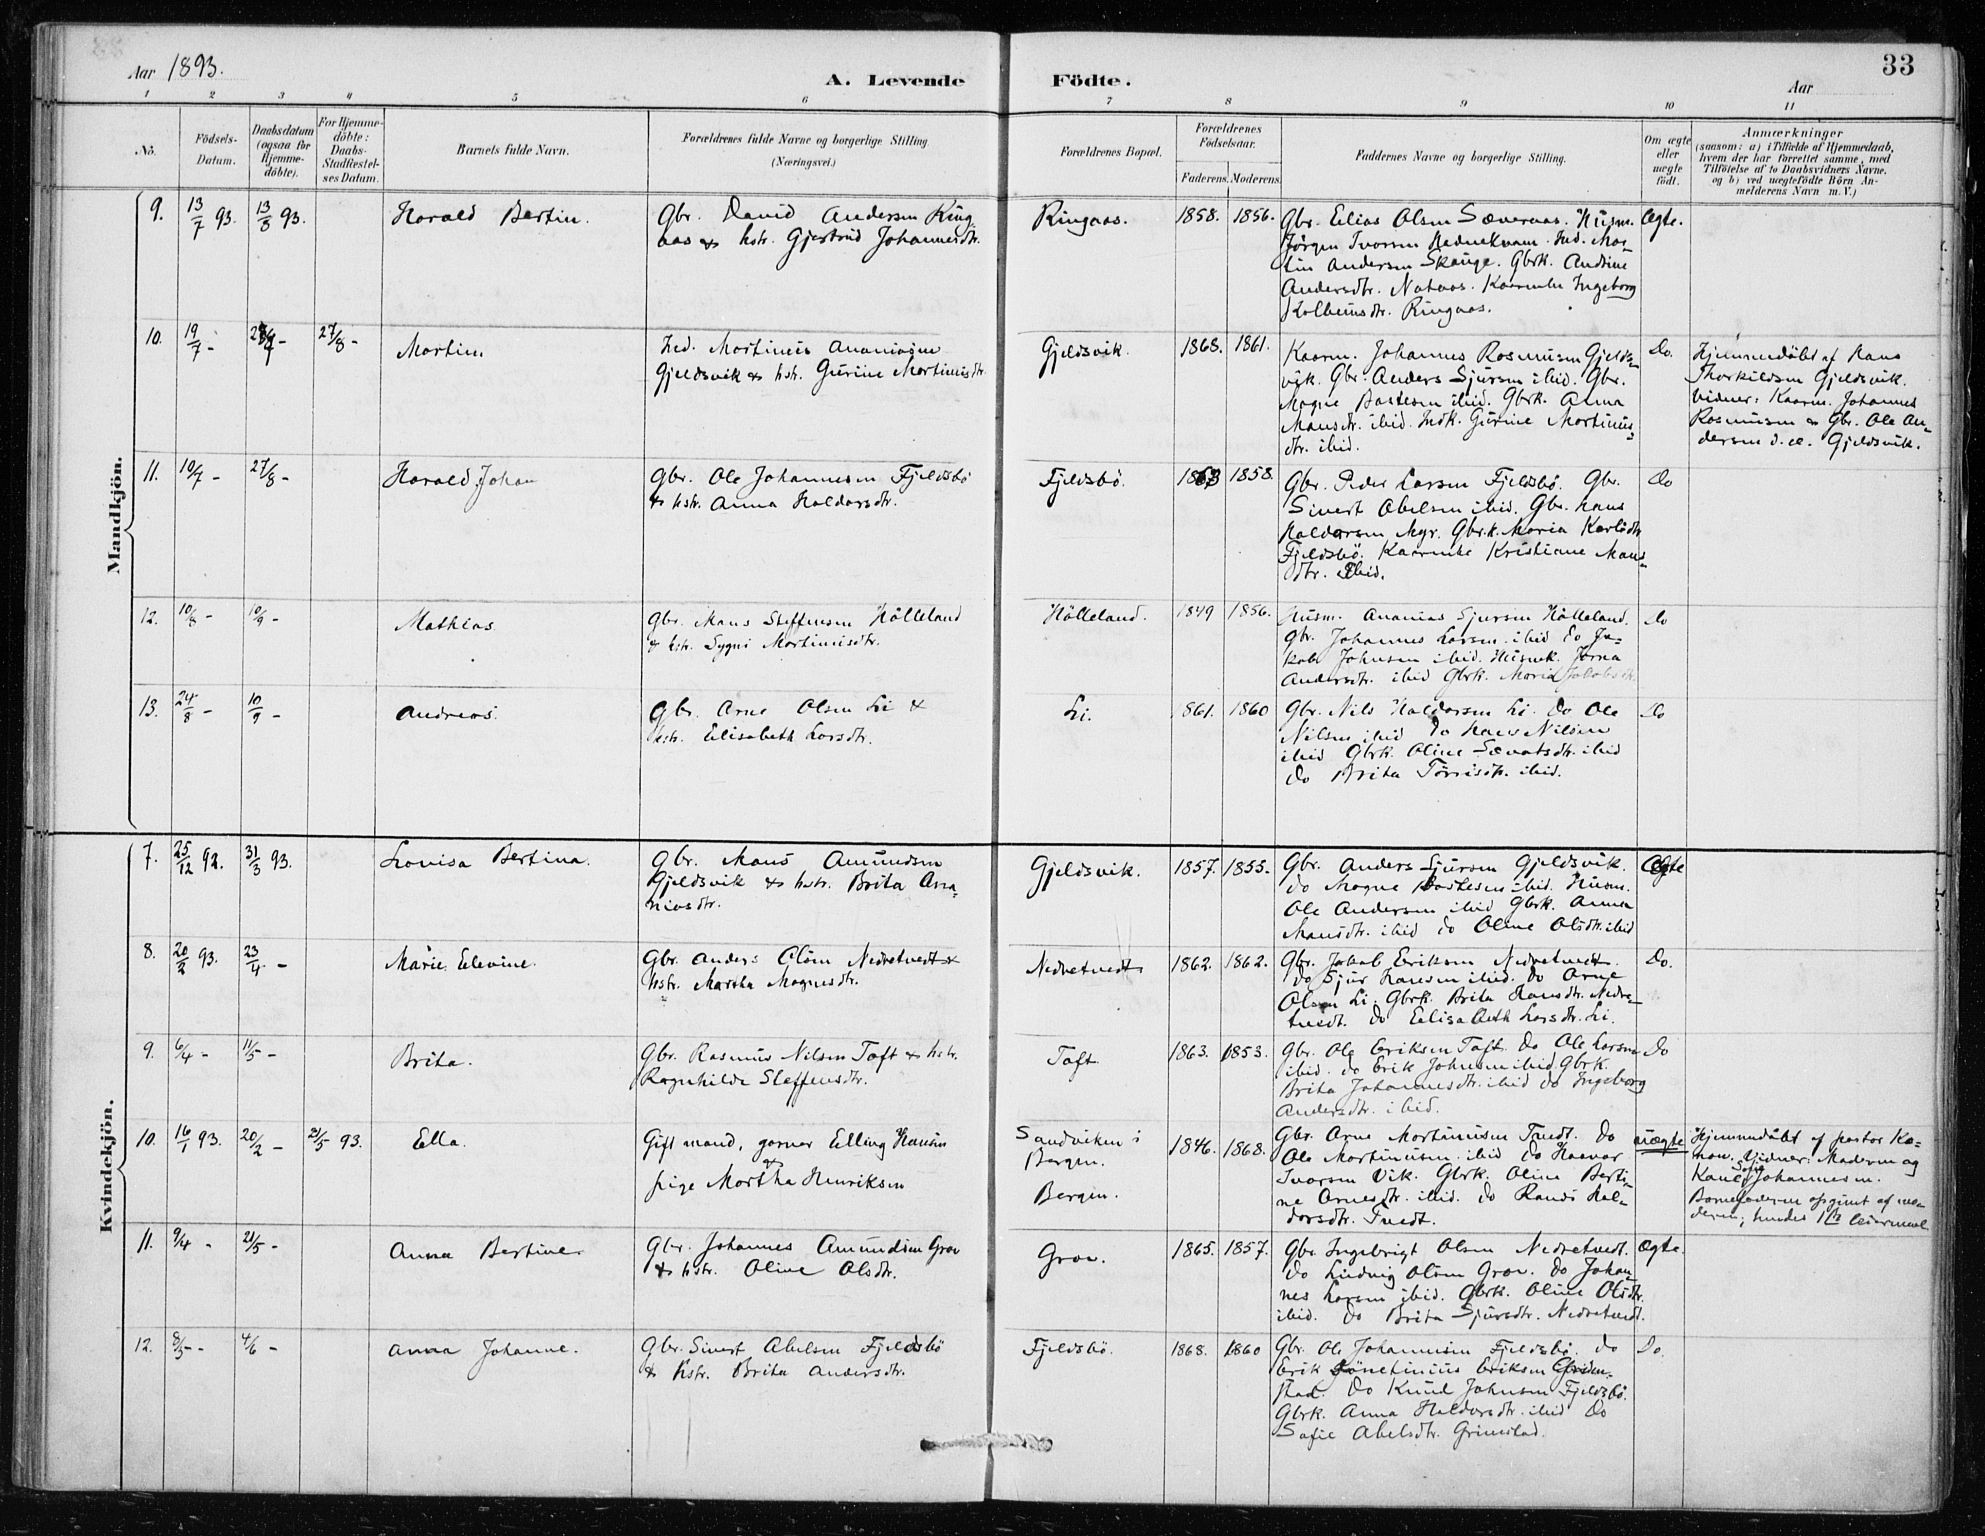 33
Aar 1893.
A. Levende Födte.
Aar
1 2 3 4 5 6 7 8 9 10 11
No.
Födsels-Datum.
Daabsdatum (ogsaa for Hjemme-döbte).
For Hjemme-döbte: Daabs-Stadfestel-ses Datum.
Barnets fulde Navn.
Forældrenes fulde Navne og borgerlige Stilling (Næringsvei.)
Forældrenes Bopæl.
Forældrenes Födselsaar.
Faderens. Moderens.
Faddernes Navne og borgerlige Stilling.
Om ægte eller uægte födt.
Anmærkninger
(saasom: a) i Tilfælde af Hjemmedaab, hvem der har forrettet samme, med Tilföielse af to Daabsvidners Navne. og b) ved uægtefödte Börn An-melderens Navn m. V.)
Mandkjön.
9. 13/7 93. 13/8 93. Harald Bertin.
Gbr. David Andersen Ring
aas & hstr. Gjertrud Johannesdtr.
Ringaas. 1858. 1856.
Gbr. Elias Olsen Sæveraas. Husm.
Jörgen Ivarsen Rednekvam. Ind. Mar-
tin Andersen Skauge. Gbrk. Andrine
Andersdtr. Nataas. Kaarenke Ingeborg
Kolbeinsdtr. Ringaas.
Ægte.
10. 19/7 - 27/8 - Martin
Ind. Mortinus Ananiasen
Gjeldsvik & hstr. Gurine Mortinusdtr.
Gjeldsvik. 1868. 1861.
Kaarm. Johannes Rasmusen Gjelds-
vik. Gbr. Anders Sjursen ibid. Gbr.
Magne Bastesen ibid. Gbrk. Anna
Mansdtr. ibid. Indk. Gurine Mortinus-
dtr. ibid.
Do.
Hjemmedöbt af Hans
Thorkildsen Gjeldsvik.
Vidner: Kaarm. Johannes
Rasmusen & Gbr. Ole An-
dersen d. æ. Gjeldsvik.
11. 10/7 - 27/8 - Harald Johan
Gbr. Ole Johannesen Fjeldsbö
& hstr. Anna Haldorsdtr.
Fjeldsbö. 1863 1858.
Gbr. Peder Larsen Fjeldsbö. Gbr.
Sivert Abelsen ibid. Gbr. Hans
Haldorsen Myr. Gbrk. Maria Karlsdtr.
Fjeldsbö. Kaarenke Kristiane Mans-
dtr. ibid.
Do
12. 10/8 - 10/9 - Mathias
Gbr. Mans Steffensen Hölleland
& hstr. Sygni Mortinusdtr.
Hölleland. 1849 1856.
Husm. Ananias Sjursen Hölleland.
Gbr. Johannes Larsen ibid Do Ja-
kob Johnsen ibid. Husmk. Jorna
Andersdtr. ibid Gbrk. Maria Jakobsdtr.
Do
13. 24/8 - 10/9 - Andreas.
Gbr. Arne Olsen Li &
hstr. Elisabeth Larsdtr.
Li. 861. 1860
Gbr. Nils Haldorsen Li. Do Ole
Nilsen ibid Do Hans Nilsen
ibid Gbrk. Oline Sævatsdtr. ibid
Do Brita Torrisdtr. ibid.
Do
Kvindekjön.
7. 25/12 92. 31/3 93. Lovisa Bertina.
Gbr. Mans Amundsen
Gjeldsvik & hstr. Brita Ana-
niasdtr.
Gjeldsvik. 1857. 1855.
Gbr. Anders Sjursen Gjeldsvik.
Do Magne Bastesen ibid. Husm.
Ole Andersen ibid Gbrk. Anna
Mansdtr. ibid Do Oline Olsdtr. ibid
Ægte
8. 20/2 93. 23/4 - Marie Elevine.
Gbr. Anders Olsen Nedretvedt &
hstr. Martha Magnesdtr.
Nedretvedt 1862. 1862.
Gbr. Jakob Eriksen Nedretvedt.
Do Sjur Hansen ibid. Do Arne
Olsen Li. Gbrk. Brita Hansdtr. Nedre-
tvedt. Do Elisabeth Larsdtr. Li.
Do.
9. 6/4 - 11/5 - Brita.
Gbr. Rasmus Nilsen Toft & hstr.
Ragnhilde Steffensdtr.
Toft 1863. 1853.
Gbr. Ole Eriksen Toft. Do Ole Larsen
ibid. Do Erik Johnsen ibid. Gbrk.
Brita Johannesdtr. ibid Do Ingeborg
Andersdtr. ibid.
Do
10. 16/1 93. 20/2 - 21/5 93. Ella.
Gift mand, garver Elling Hansen
&
pige Martha Henriksen
Sandviken i
Bergen.
Bergen.
1846. 1868.
Gbr. Arne Mortinusen Tvedt. Do
Ole Mortinusen ibid Do Haavar
Ivarsen Vik. Gbrk. Oline Berti-
ne Arnesdtr. ibid. Do Randi Hal-
dorsdtr. Tvedt.
uægte
Hjemmedöbt af pastor Ko-
now. Vidner: Moderen og
Kone Sofie Johannesen.
Barnefaderen opgivet af mo-
deren, hendes 1ste leiermaal
11. 9/4 - 21/5 - Anna Bertine
Gbr. Johannes Amundsen Grov
& hstr. Oline Olsdtr.
Grov. 1865. 1857.
Gbr. Ingebrigt Olsen Nedretvedt.
Do Ludvig Olsen Grov. Do Johan-
nes Larsen ibid. Gbrk. Oline Olsdtr.
ibid. Do Brita Sjursdtr. Nedretvedt.
Ægte.
12. 8/5 - 4/6 - Anna Johanne.
Gbr. Sivert Abelsen Fjeldsbö
& hstr. Brita Andersdtr.
Fjeldsbö. 1868. 1860
Gbr. Ole Johannesen Fjeldsbö. Do
Erik Eriksen
stad. Do Knud Johnsen Fjeldsbö.
Gbrk. Anna Haldorsdtr. ibid Do
Sofie Abelsdtr. Grimstad.
Do.